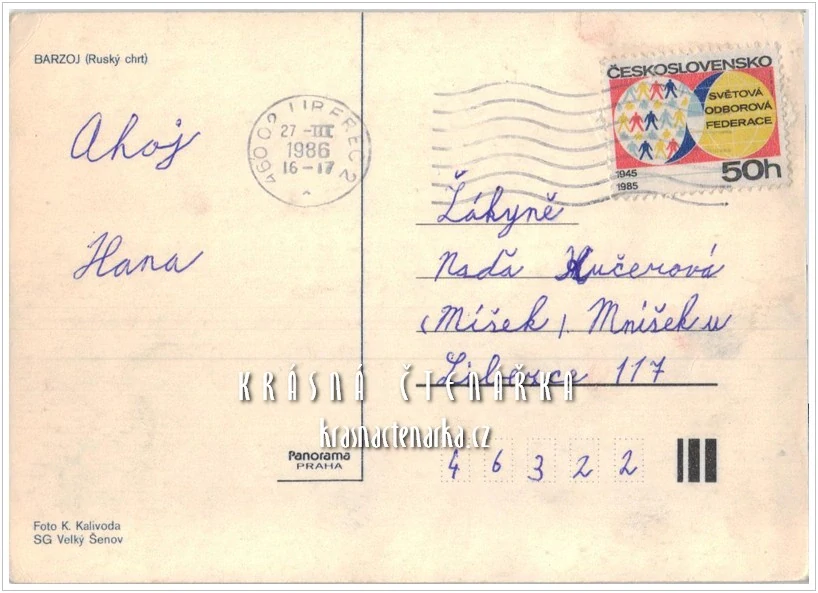 BARZOJ (Ruský chrt)
Ahoj
Hana
460 02 LIBEREC 2
27 -III
1986
16 -17
ČESKOSLOVENSKO
SVĚTOVÁ
ODBOROVÁ
FEDERACE
50h
1945
1985
Žákyně
Naďa Kučerová
(Míšek) Mníšek u
Liberce 117
KRÁSNÁ ČTENÁŘKA
krasnactenarka.cz
46322
Panorama
PRAHA
Foto K. Kalivoda
SG Velký Šenov